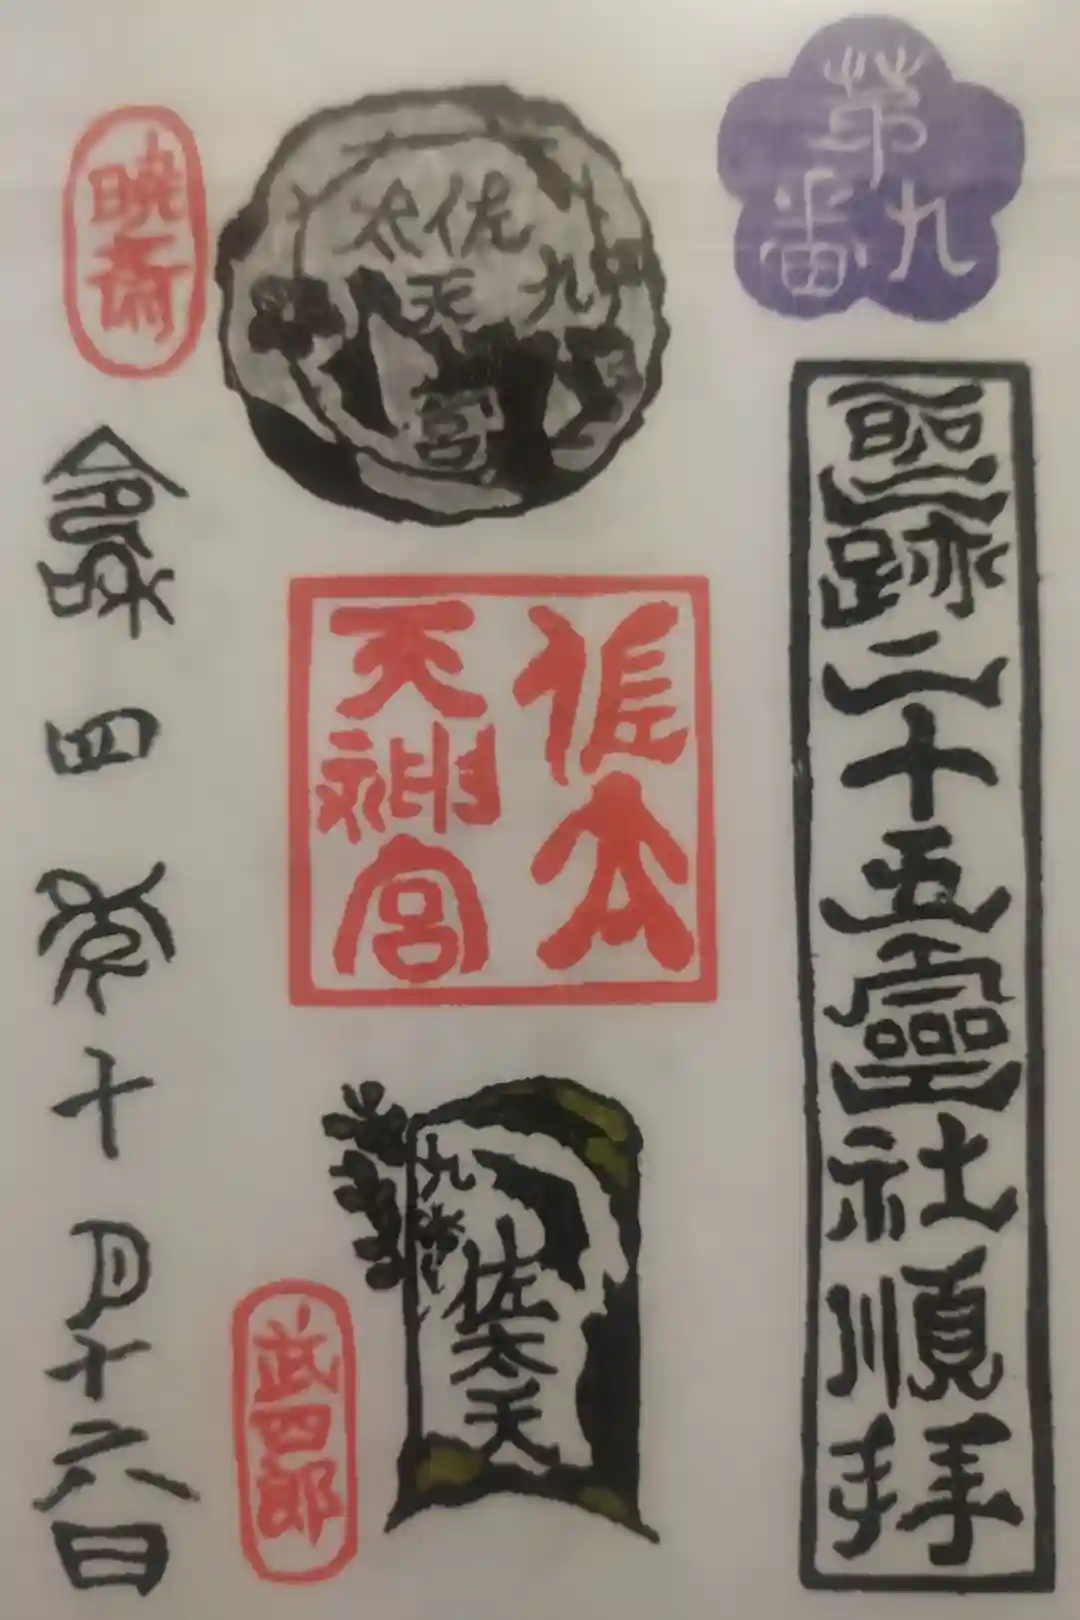 第九番
聖跡二十五靈社順拝
佐太天宮
九
佐太天神宮
九
佐太天
武四郎
暁斎
令和四年十月十六日